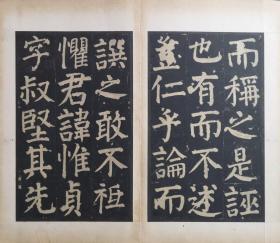 而稱之是誣
也有而不述
豈仁乎論而
譔之敢不祗
懼君諱惟貞
字叔堅其先